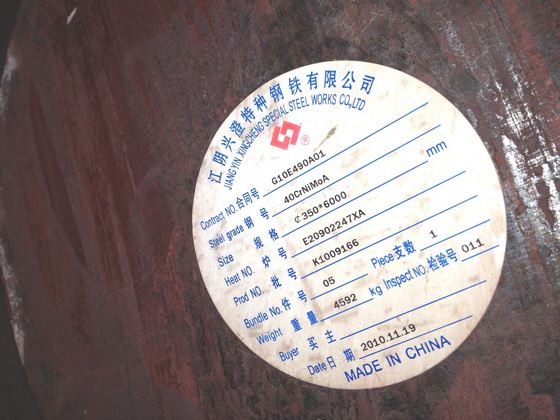 江阴兴澄特种钢铁有限公司
JIANGYIN XINGCHENG SPECIAL STEEL WORKS CO.,LTD
®
Contract NO.合同号 G10E490A01
Steel grade 钢 号 40CrNiMoA
Size 规 格 ¢350*6000 mm
Heat NO. 炉 号 E20902247XA
Prod NO. 批 号 K1009166
Bundle No.件 号 05 Piece支数 1
Weight 重 量 4592 kg Inspect NO.检验号 011
Buyer 买 主
Date日 期 2010.11.19
MADE IN CHINA